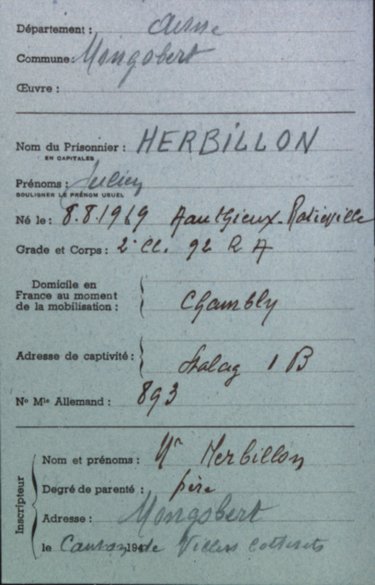 Département : Aisne
Commune : Mongobert
Œuvre :
Nom du Prisonnier : HERBILLON
EN CAPITALES
Prénoms : Julien
SOULIGNER LE PRÉNOM USUEL
Né le : 8.8.1919
Grade et Corps : 2e Cl. 92 R A
Domicile en
France au moment
de la mobilisation :
Chambly
Adresse de captivité : Stalag 1 B
No Mle Allemand : 893
Inscripteur
Nom et prénoms : Mr Herbillon
Degré de parenté : père
Adresse : Mongobert
le Canton de Villers Cotterets 194